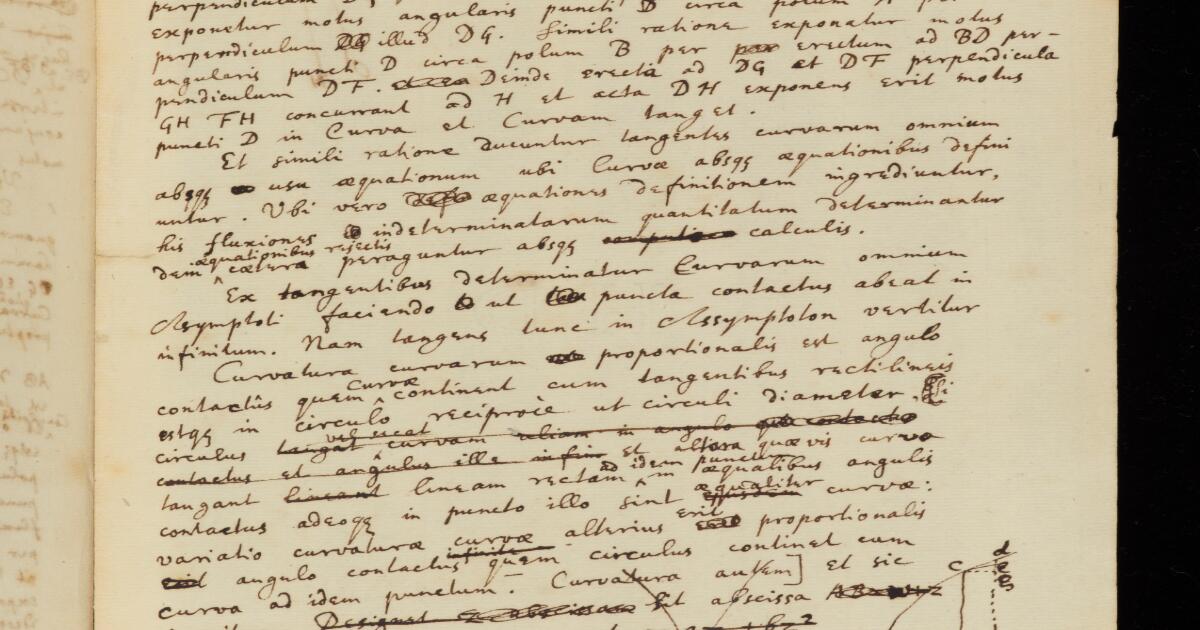 perpendiculum
exponetur motus angularis puncti D circa polum A
perpendiculum DG illud DG. Simili ratione exponatur motus
angularis puncti D circa polum B per per erectum ad BD per-
pendiculum DF. Deinde erecta ad DG et DF perpendicula
GH FH concurrant ad H et acta DH exponens erit motus
puncti D in Curva et Curvam tanget.
Et simili ratione ducuntur tangentes curvarum omnium
absqꝫ usu æquationum ubi Curvæ absqꝫ æquationibus defini
untur. Ubi vero æquationes definitionem ingrediuntur,
his fluxiones indeterminatarum quantitatum determinantur
æquationibus rejectis
dein ^ cætera peraguntur absqꝫ calculis.
Ex tangentibus determinatur Curvarum omnium
Assymptoti faciendo ut puncta contactus abeat in
infinitum. Nam tangens tunc in Assymptoton vertitur
Curvatura curvarum proportionalis est angulo
curvæ
contactûs quem ^ continent cum tangentibus rectilineis
estqꝫ in circulo reciprocè ut circuli diameter. Si
vel secat
circulus tangat ^ curvam in angulo
contactus et angulus ille et altera quævis curva
ad idem punctum
tangant lineam rectam ^ in æqualibus angulis
æqualiter
contactus adeoqꝫ in puncto illo sint ejusdem curvæ:
erit
variatio curvaturæ curvæ alterius proportionalis
infinite
erit angulo contactus quem circulus continet cum
curva ad idem punctum. Curvatura autem] et sic
Designet sit abscissa
c d e